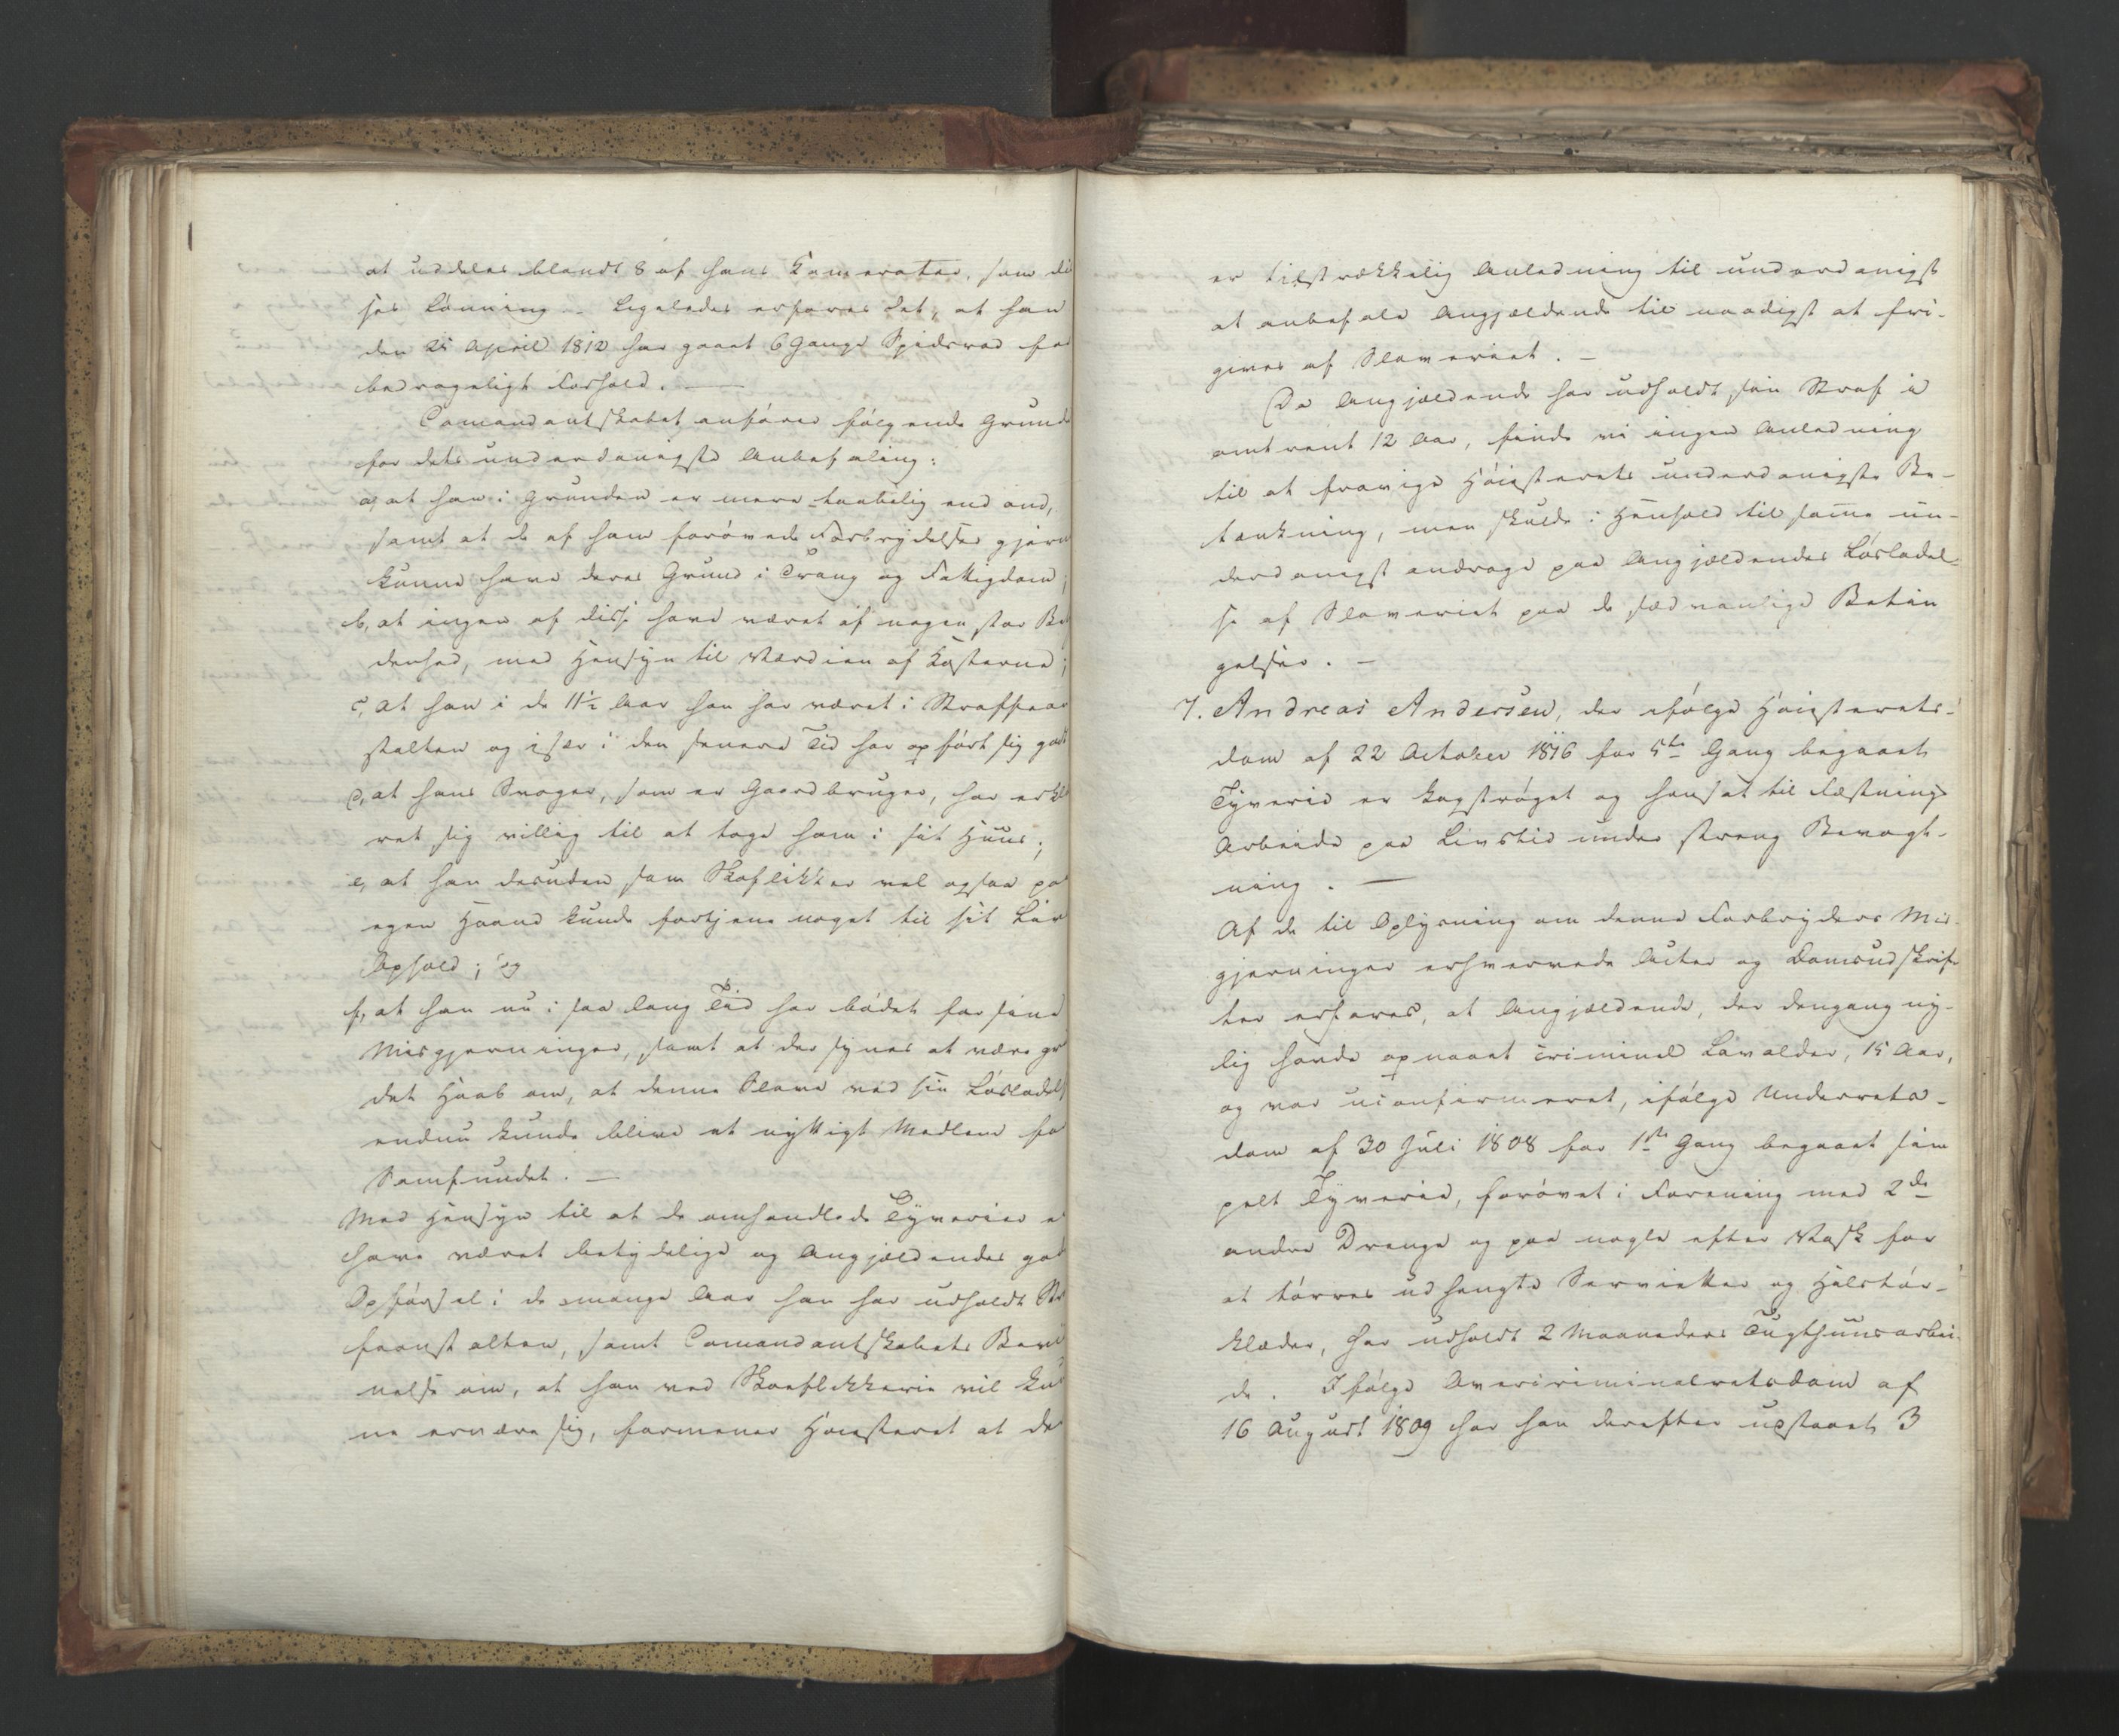 at uddeles blandt 8 af hans Kamerater, som di
ses Lønning. Ligeledes erfares det, at han
den 25 April 1812 har gaaet 6 Gange Spidsrod for
bedrageligt Forhold. —
Comandantskabet anfører følgende Grunde
for dets underdanigste Anbefaling:
a, at han i Grunden er mere taabelig end ond,
samt at de af ham forøvede Forbrydelser gjerne
kunne have deres Grund i Trang og Fattigdom;
b, at ingen af disse have været af nogen stor Be
denhed, med Hensyn til Værdien af Kosterne;
c, at han i de 11½ Aar han har været i Straffean
stalten og især i den senere Tid har opført sig godt
d, at hans Svoger, som er Gaardbruger, har erklæ
ret sig villig til at tage ham i sit Huus;
e, at han desuden som Skoflikker vel ogsaa paa
egen Haand kunde fortjene noget til sit Livs
Ophold; og
f, at han nu i saa lang Tid har bødet for sine
Misgjerninger, samt at der synes at være grun
det Haab om, at denne Slave ved sin Løsladelse
endnu kunde blive et nyttigt Medlem for
Samfundet. —
Med Hensyn til at de omhandlede Tyverier ei
have været betydelige og Angjældendes gode
Opførsel i de mange Aar han har udholdt Stra
feanstalten, samt Comandantskabets Bevid
nelse om, at han ved Skoeflikkerie vil kun
ne ernære sig, formener Høiesteret at der
er tilstrækkelig Anledning til underdanigst
at anbefale Angjældende til naadigst at fri-
gives af Slaveriet. —
Da Angjældende har udholdt sin Straf i
omtrent 12 Aar, finde vi ingen Anledning
til at fravige Høiesterets underdanigste Be-
tænkning, men skulde i Henhold til samme un-
derdanigst andrage paa Angjældendes Løsladel-
se af Slaveriet paa de sædvanlige Betin
gelser. —
7. Andreas Andersen, der ifølge Høiesterets-
dom af 22 October 1816 for 5te Gang begaaet
Tyverie er kagstrøget og hensat til Fæstnings
Arbeide paa Livstid under streng Bevogt-
ning. —
Af de til Oplysning om denne Forbryders Mis-
gjerninger erhvervede Acter og Domsudskrif-
ter erfares, at Angjældende, der dengang ny-
lig havde opnaaet criminel Lavalder, 15 Aar,
og var uconfirmeret, ifølge Underrets-
dom af 30 Juli 1808 for 1ste Gang begaaet sim
pelt Tyverie, forøvet i Forening med 2de
andre Drenge og paa nogle efter Vask for
at tørres udhengte Servietter og Halstør-
klæder, har udholdt 2 Maaneders Tugthuusarbei-
de. Ifølge Overcriminalretsdom af
16 August 1809 har han derefter udstaaet 3